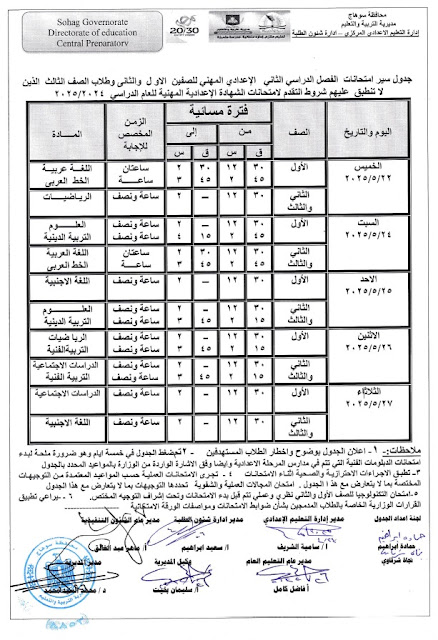 محافظة سوهاج
مديرية التربية والتعليم
إدارة التعليم الاعدادى المركزي - إدارة شئون الطلبة
20/30
Sohag Governorate
Directore of education
Central Preparatory
جدول سير امتحانات الفصل الدراسي الثاني الإعدادي المهني للصفين الاول والثاني وطلاب الصف الثالث الذين
لا تنطبق عليهم شروط التقدم لامتحانات الشهادة الإعدادية المهنية للعام الدراسي ٢٠٢٥/٢٠٢٤
اليوم والتاريخ الصف فترة مسائية الزمن المخصص للإجابة المادة
من إلى
ق س ق س
الخميس ٢٠٢٥/٥/٢٢
الأول ٣٠ ١٢ ٣٠ ٢ ساعتان اللغة عربية
٤٥ ٢ ٤٥ ٣ ساعة الخط العربى
الثاني والثالث ٣٠ ١٢ – ٢ ساعة ونصف الرياضيات
السبت ٢٠٢٥/٥/٢٤
الأول ٣٠ ١٢ – ٢ ساعة ونصف العلوم
١٥ ٢ ٤٥ ٣ ساعة ونصف التربية الدينية
الثاني والثالث ٣٠ ١٢ ٣٠ ٢ ساعتان اللغة العربية
٤٥ ٢ ٤٥ ٣ ساعة الخط العربى
الاحد ٢٠٢٥/٥/٢٥
الأول ٣٠ ١٢ – ٢ ساعة ونصف اللغة الاجنبية
الثاني والثالث ٣٠ ١٢ – ٢ ساعة ونصف العلوم
١٥ ٢ ٤٥ ٣ ساعة ونصف التربية الدينية
الاثنين ٢٠٢٥/٥/٢٦
الأول ٣٠ ١٢ – ٢ ساعة ونصف الرياضيات
١٥ ٢ ٤٥ ٣ ساعة ونصف التربية الفنية
الثاني والثالث ٣٠ ١٢ – ٢ ساعة ونصف الدراسات الاجتماعية
١٥ ٢ ٤٥ ٣ ساعة ونصف التربية الفنية
الثلاثاء ٢٠٢٥/٥/٢٧
الأول ٣٠ ١٢ – ٢ ساعة ونصف الدراسات الاجتماعية
الثاني والثالث ٣٠ ١٢ – ٢ ساعة ونصف اللغة الاجنبية
ملاحظات:- ١- اعلان الجدول بوضوح واخطار الطلاب المستهدفين - ٢-تم ضغط الجدول في خمسة ايام وهو ضرورة ملحة لبدء
امتحانات الدبلومات الفنية التي تتم في مدارس المرحلة الاعدادية وايضا وفق الاشارة الواردة من الوزارة بالمواعيد المحدد بالجدول
٣- تطبق الاجراءات الاحترازية والصحية أثناء الامتحانات ٤ - تجرى الامتحانات العملية حسب المواعيد المعتمدة من التوجيهات
المختصة بما لا يتعارض مع هذا الجدول . امتحان المجالات العملية والشفوية تحددها التوجيهات بما لا يتعارض مع هذا الجدول
٥-امتحان التكنولوجيا للصف الأول والثاني نظري وعملي تتم قبل بدء الامتحانات وتحت إشراف التوجيه المختص. ٦ -يراعي تطبيق
القرارات الوزارية الخاصة بالطلاب المدمجين بشأن ضوابط الامتحانات ومواصفات الورقة الامتحانية
لجنة اعداد الجدول مدير إدارة التعليم الإعدادي مدير شئون الطلبة مدير عام الشئون التنفيذية
حمادة ابراهيم أ/ سامية الشريف أ/ سعيد ابراهيم أ/ ماهر عبد الخالق
نجاة شرقاوي
مدير عام التعليم العام وكيل المديرية مدير المديرية
أ/ فاضل كامل أ/ سليمان بخيت د/ محمد السيد محمد